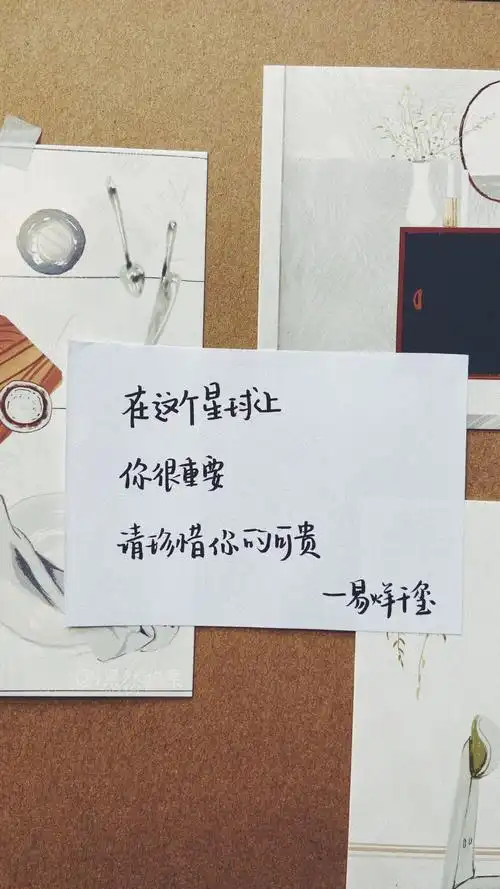 在这个星球上
你很重要
请珍惜你的可贵
—易烊千玺